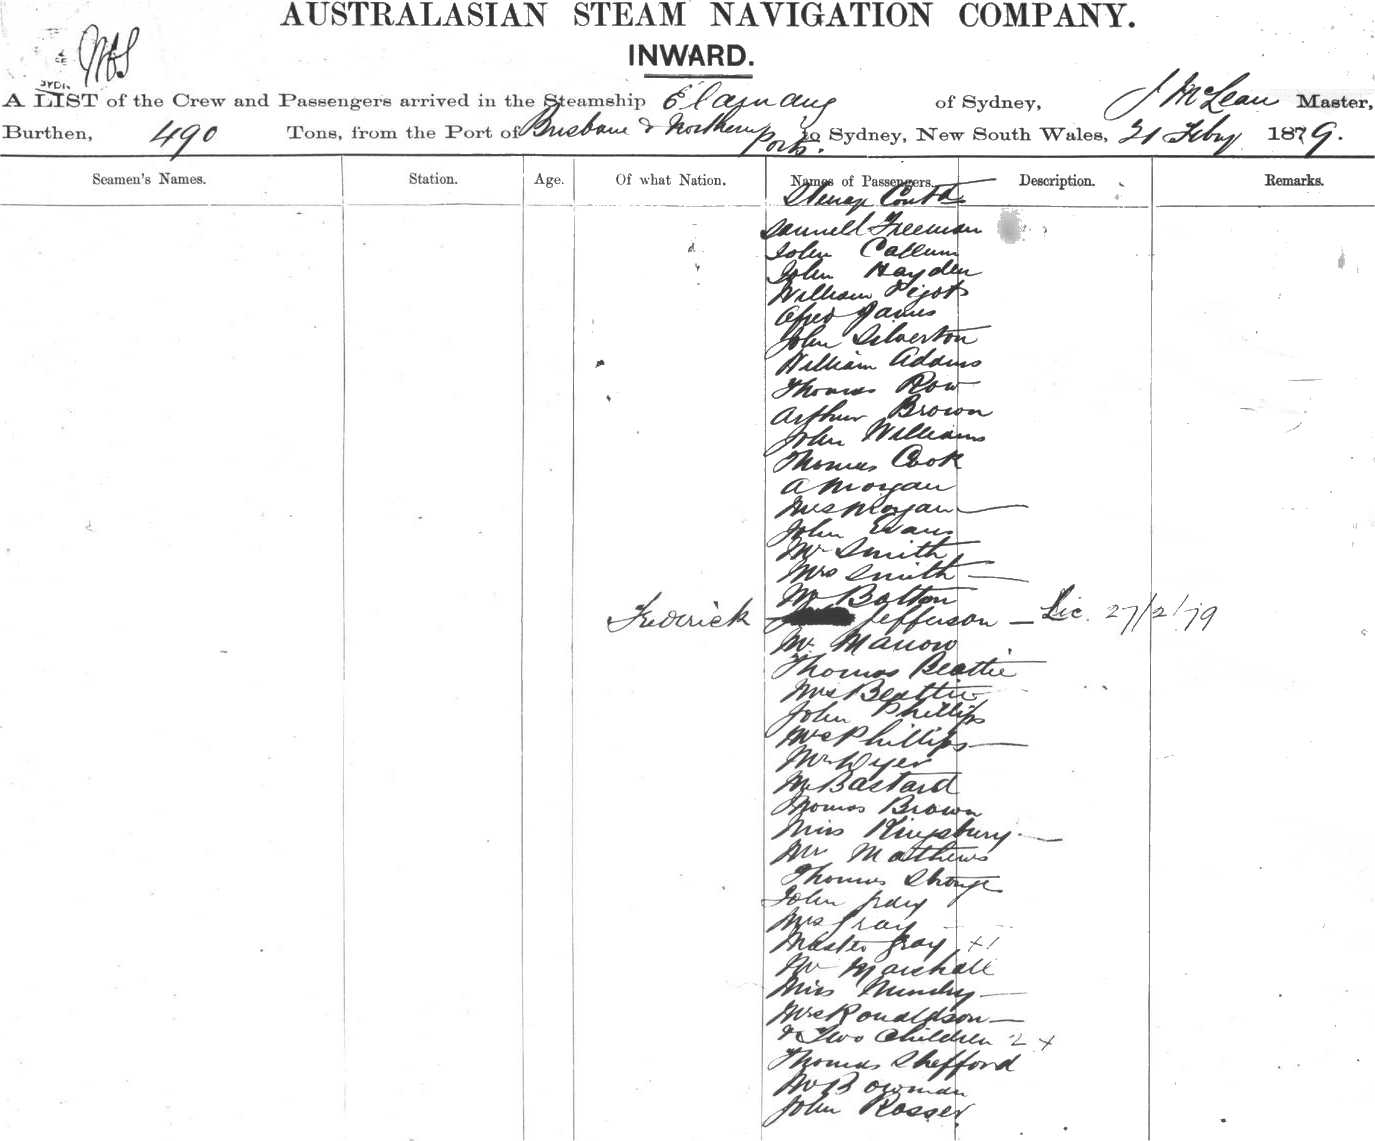 AUSTRALASIAN STEAM NAVIGATION COMPANY.
INWARD.
A LIST of the Crew and Passengers arrived in the Steamship Elamang of Sydney, J McLean Master,
Burthen, 490 Tons, from the Port of Brisbane & Northern Ports. to Sydney, New South Wales, 21 Feby 1879.
Seamen's Names. Station. Age. Of what Nation. Names of Passengers. Description. Remarks.
Steerage Contd
Samuell Freeman
John Callum
John Hayden
William Pigot
Alfred James
John Silverton
William Addins
Thomas Row
Arthur Brown
John Williams
Thomas Cook
A Morgan
Mrs Morgan —
John Evans
Mr Smith
Mrs Smith —
Mr Bolton
Frederick Jefferson — Lic. 27/2/79
Mr Marrow
Thomas Beattie
Mrs Beattie
John Phillips
Mrs Phillips —
Mr Dyer
Mr Bastard
Thomas Brown
Miss Kingsbury —
Mr Mathews
Thomas Strong
John Gray
Mrs Gray
Master Gray + 1
Mr Marshall
Miss Mundy —
Mrs Ronaldson —
& Two Children 2 +
Thomas Shefford
Mr Bowman
John Rosser